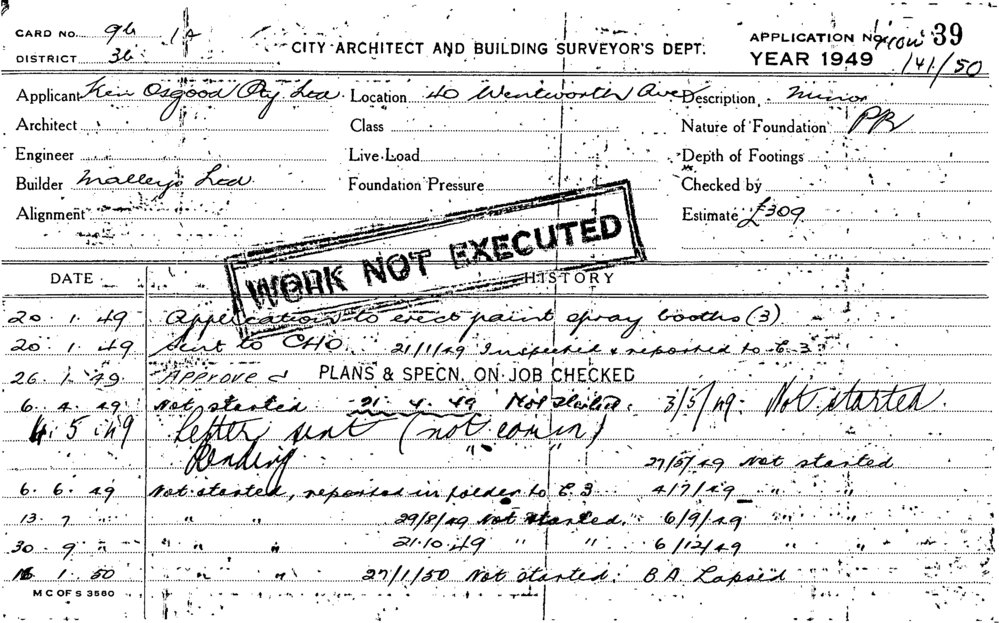 CARD NO. 9b 1A
CITY ARCHITECT AND BUILDING SURVEYOR'S DEPT.
APPLICATION No. 39
DISTRICT 3b
YEAR 1949 141/50
Applicant Ken Osgood Pty Ltd. Location 40 Wentworth Ave Description Minor
Architect Class Nature of Foundation PR
Engineer Live Load Depth of Footings
Builder Malleys Ltd. Foundation Pressure Checked by
Alignment Estimate £309
WORK NOT EXECUTED
DATE HISTORY
20.1.49 Application to erect paint spray booths (3)
20.1.49 Sent to CHO. 21/1/49 Inspected & reported to C.3.
26.1.49 Approved PLANS & SPECN. ON JOB CHECKED
6.4.49 Not started 21.4.49 Not started. 3/5/49. Not started.
4.5.49 Letter sent (not com in)
Pending " " 27/5/49 Not started
6.6.49 Not started, reported in folder to C.3 4/7/49 " "
13.7 " " 29/8/49 Not started. 6/9/49 " "
30.9 " " " 21.10.49 " " 6/12/49 " "
16.1.50 " " 27/1/50 Not started. B.A Lapsed
M C OF S 3580